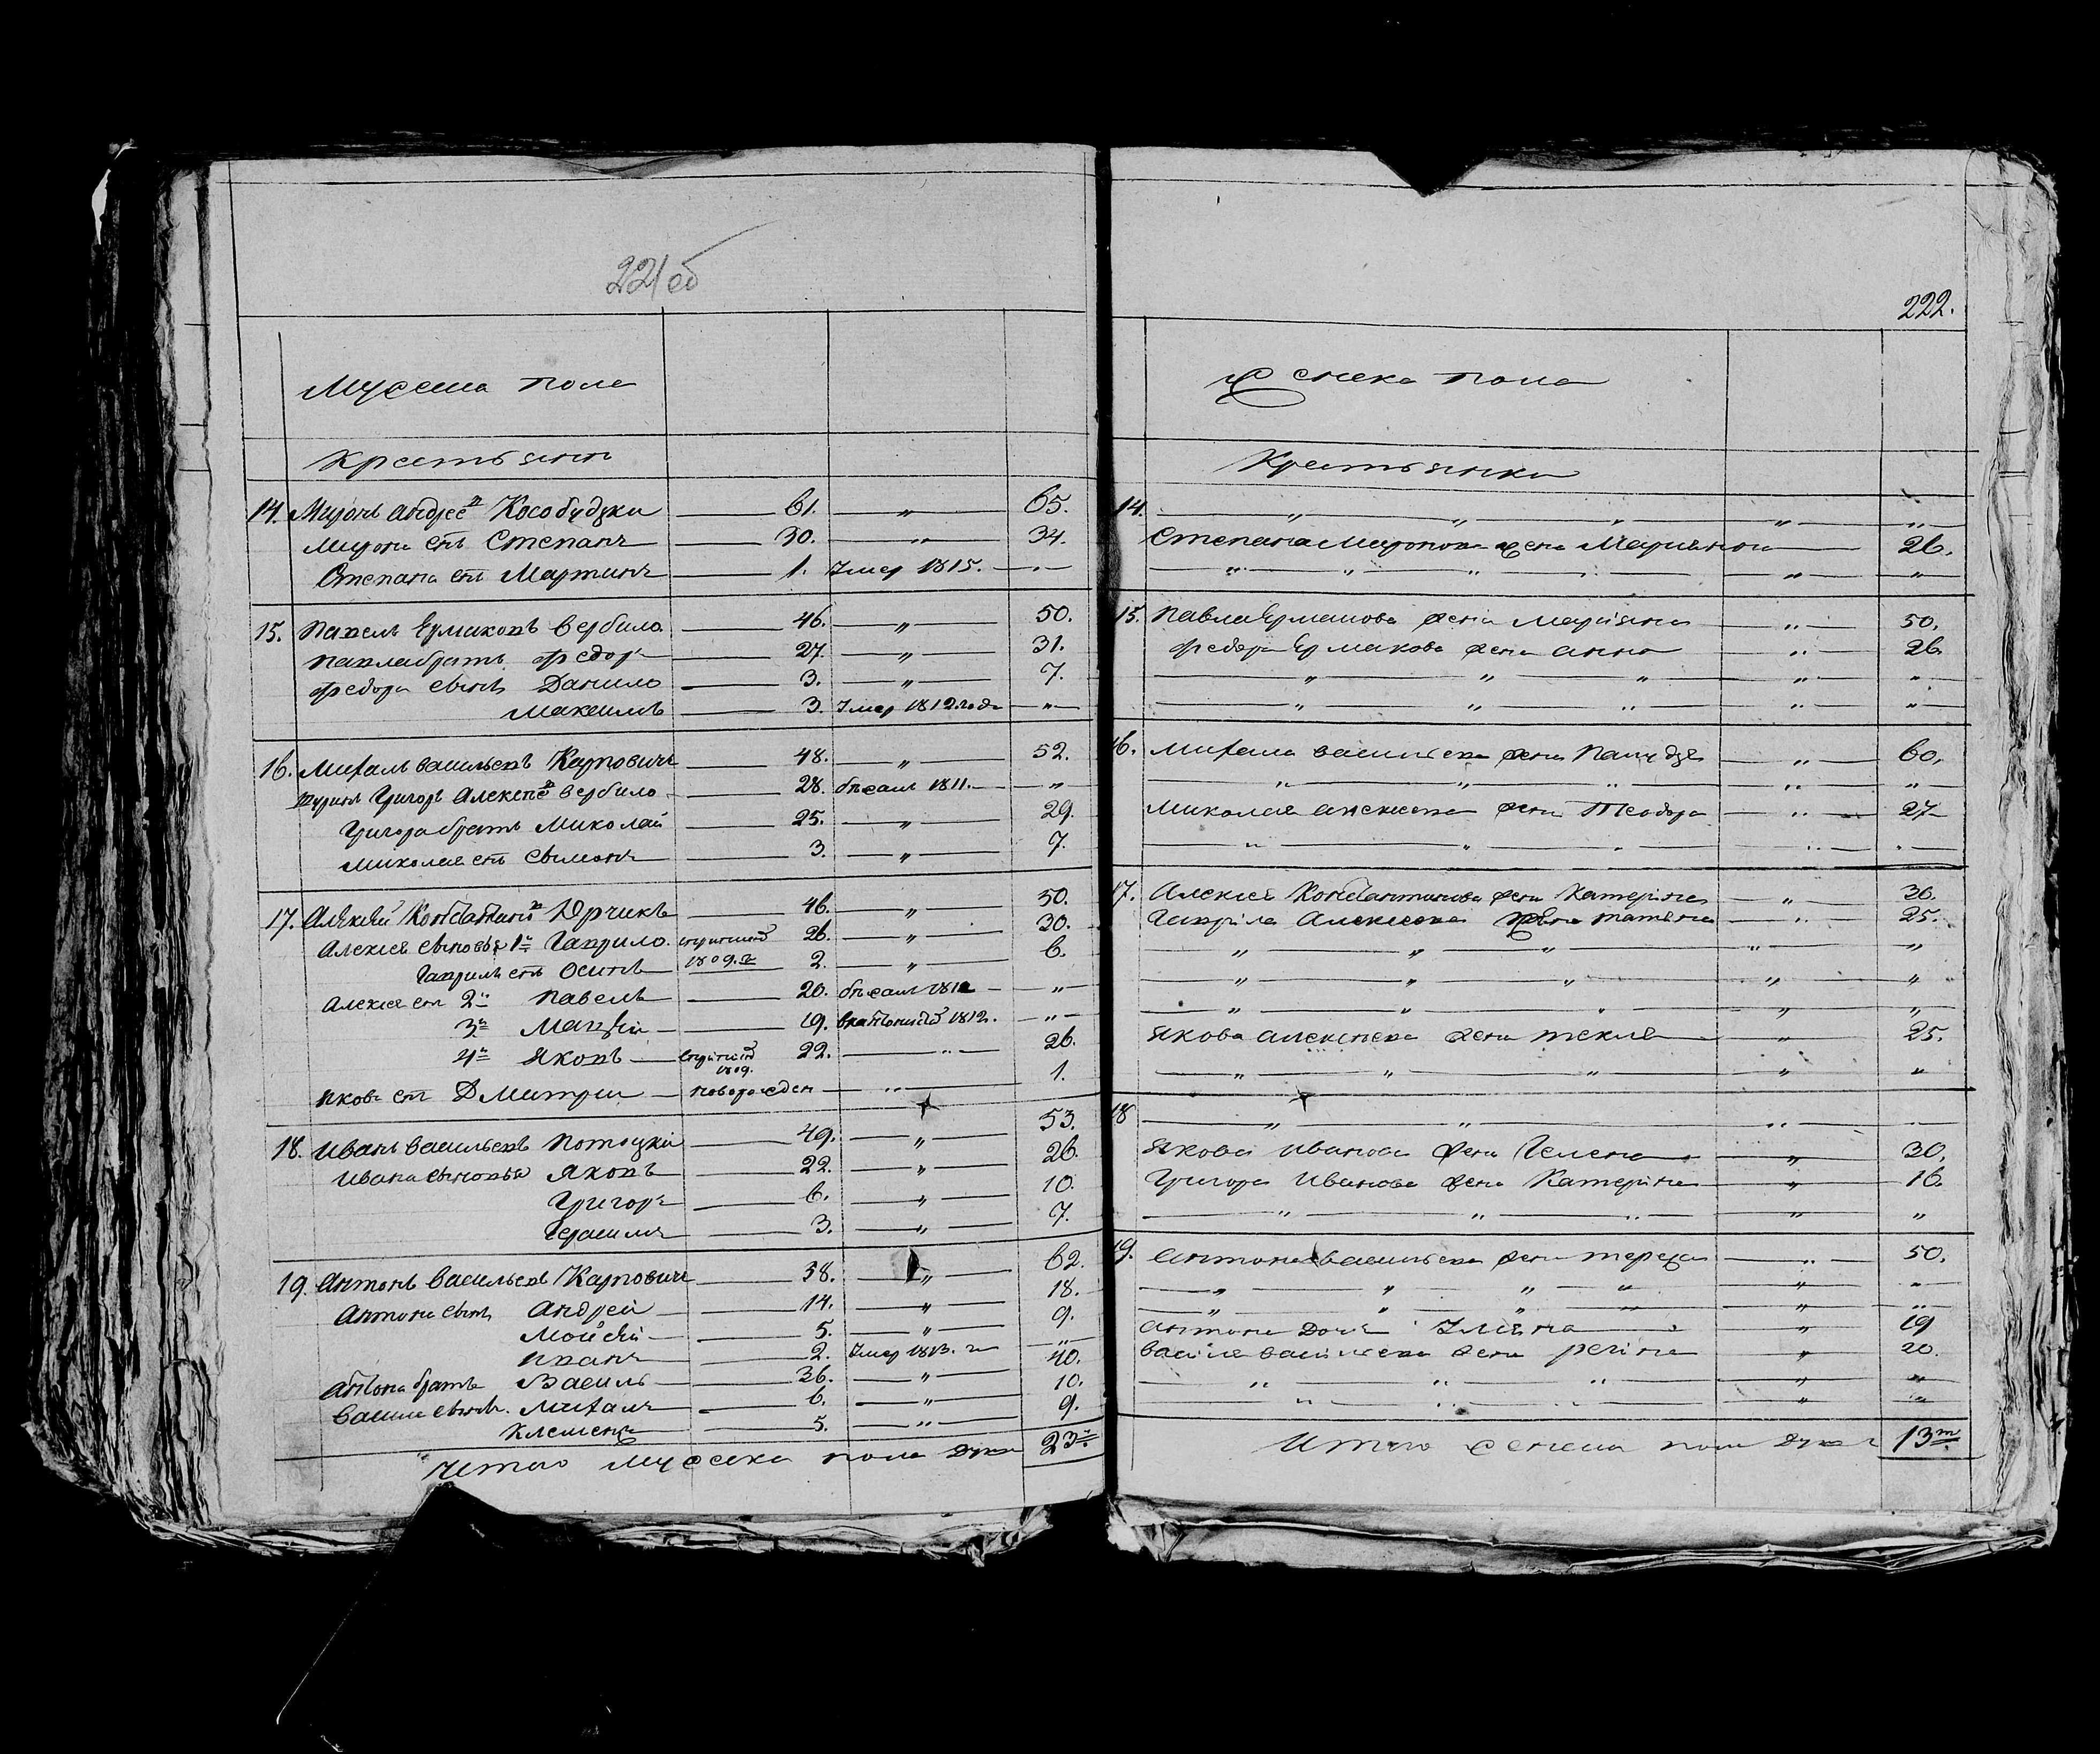 221 об
Мужеска пола
Крестьяни
14. Миронъ Андреевъ Кособудзки 61. „ 65.
Мирона снъ Степанъ 30. „ 34.
Степана снъ Мартинъ 1. Умер 1815. „
15. Павелъ Ермаковъ Вербило 46. „ 50.
Павла братъ Федоръ 27. „ 31.
Федора сынъ Данило 3. „ 7.
Максимъ 3. Умер 1812 года „
16. Михалъ Васильевъ Карповичъ 48. „ 52.
Григоръ Алексеевъ Вербило 28. бежалъ 1811. „
Григора братъ Миколай 25. „ 29.
Миколая снъ Сымонъ 3. „ 7.
17. Алексей Константиновъ Юрчикъ 46. „ 50.
Алексея сыновья 1й Гаврило 26. „ 30.
Гаврилы снъ Осипъ 1809. г 2. „ 6.
Алексея снъ 2й Павелъ 20. бежалъ 1812 „
3й 19. 1812. „
4й Яковъ 1809. 22. „ 26.
Якова снъ Дмитри новорожден „ 1.
18. Иванъ Васильевъ Потоцкий 49. „ 53.
Ивана сыновья Яковъ 22. „ 26.
Григоръ 6. „ 10.
Герасимъ 3. „ 7.
19. Антонъ Васильевъ Карповичъ 38. „ 62.
Антона сынъ Андрей 14. „ 18.
Мойсей 5. „ 9.
Иванъ 2. Умер 1813. г „
Антона братъ Василь 36. „ 40.
Василя сынъ Михалъ 6. „ 10.
Клеменъ 5. „ 9.
Итого мужеска пола душъ 23.
222.
Женска пола
Крестьянки
14. „ „ „ „ „
Степана Миронова жена Марьяна 26.
„ „ „ „ „ „
15. Павла Ермакова жена Марияна „ 50.
Федора Ермакова жена Анна „ 26.
„ „ „ „ „
„ „ „ „ „
16. Михала Васильева жена „ 60.
„ „ „ „ „
Миколая Алексеева жена Теодора „ 27
„ „ „ „ „
17. Алексея Константинова жена Катерина „ 36.
Гаврила Алексеева жена Татяна „ 25.
„ „ „ „ „
„ „ „ „ „
„ „ „ „ „
Якова Алексеева жена Текля „ 25.
„ „ „ „ „
18 „ „ „ „
Якова Иванова жена Гелена „ 30.
Григора Иванова жена Катерина „ 16.
„ „ „ „ „
19. Антона Васильева жена Тереза „ 50.
„ „ „ „ „ „
„ „ „ „ „ „
Антона дочь Уляна „ 19
Василя Васильева жена Регина „ 20.
„ „ „ „ „
„ „ „ „ „
Итого женска пола душъ 13